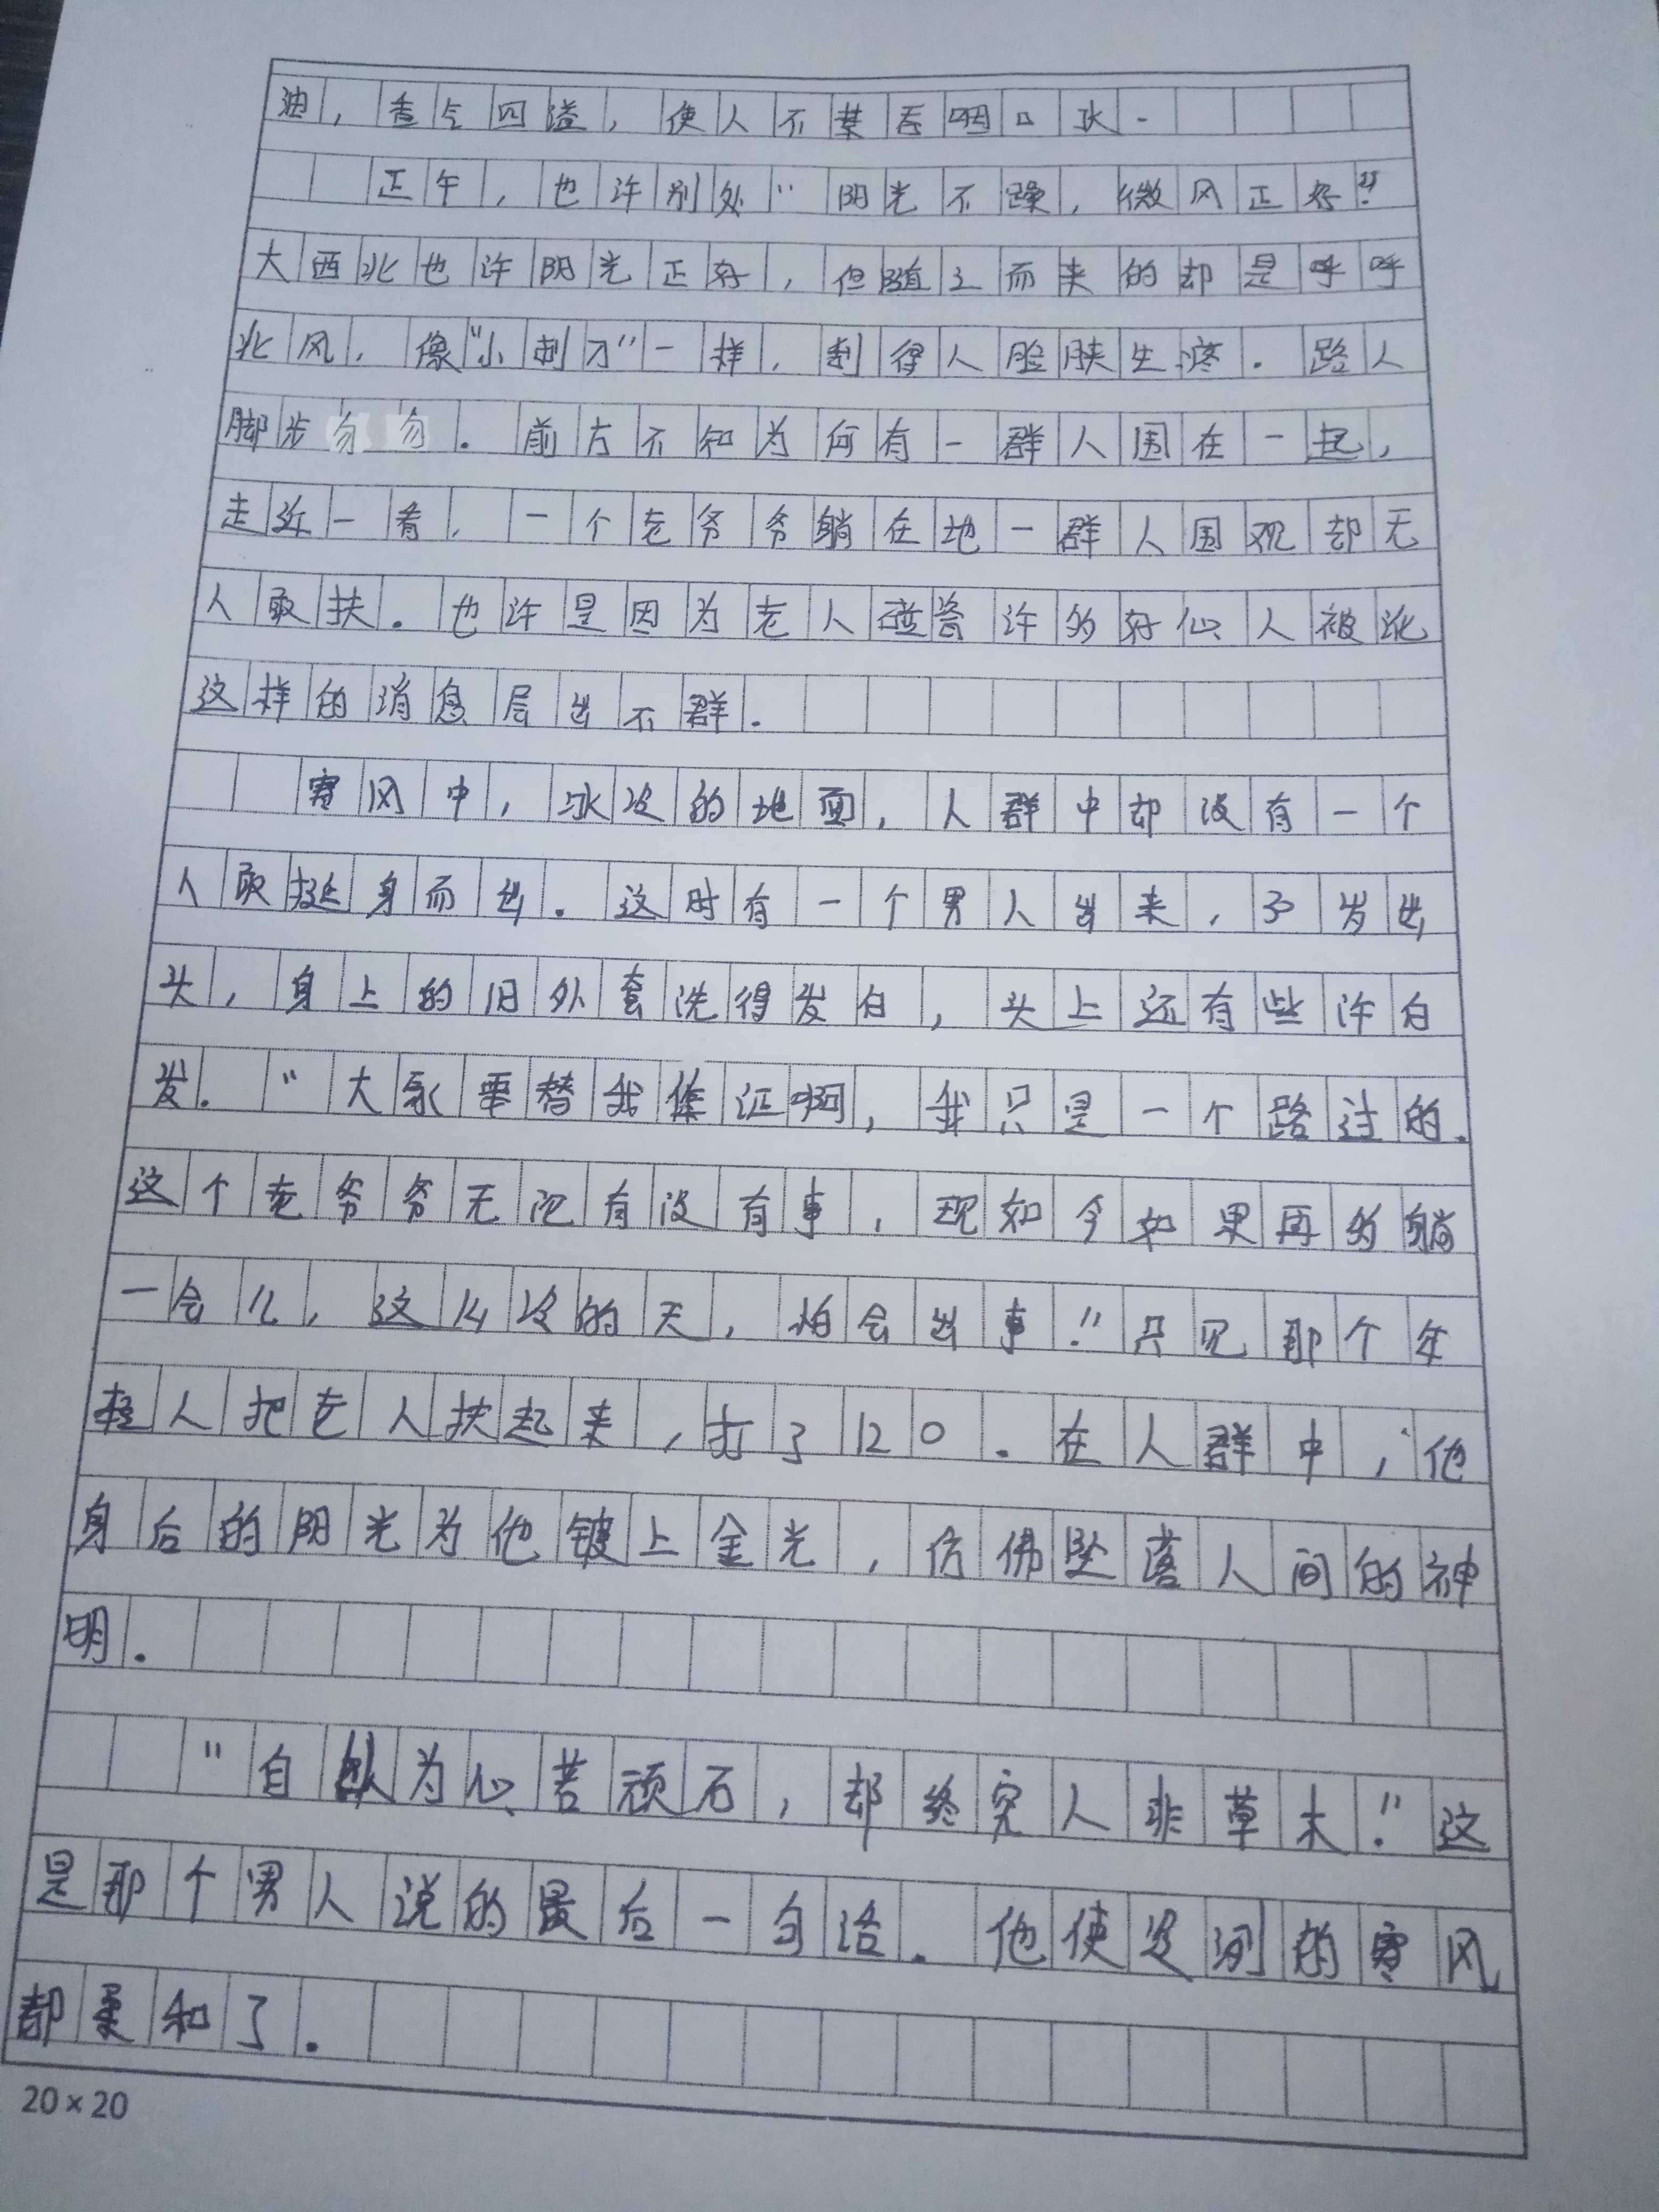 油，香气四溢，使人不禁吞咽口水.
正午，也许别处"阳光不躁，微风正好."
大西北也许阳光正好，但随之而来的却是呼呼
北风，像"小刺刀"一样，刮得人脸肤生疼.路人
脚步匆匆.前方不知为何有一群人围在一起，
走近一看，一个老爷爷躺在地一群人围观却无
人敢扶.也许是因为老人碰瓷许的好心人被讹
这样的消息层出不群.
寒风中，冰冷的地面，人群中却没有一个
人敢挺身而出.这时有一个男人出来，30岁出
头，身上的旧外套洗得发白，头上还有些许白
发."大家要替我作证啊，我只是一个路过的.
这个老爷爷无论有没有事，现如今如果再的躺
一会儿，这么冷的天，怕会出事!"只见那个年
轻人把老人扶起来，打了120.在人群中，他
身后的阳光为他镀上金光，仿佛坠落人间的神
明.
"自以为心若顽石，却终究人非草木."这
是那个男人说的最后一句话.他使凌冽的寒风
都柔和了.
20×20